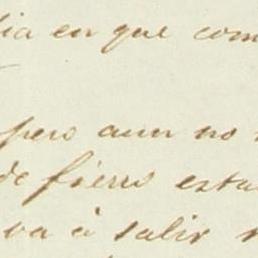 dia en que com
pero aun no
de fierro esta
va á salir